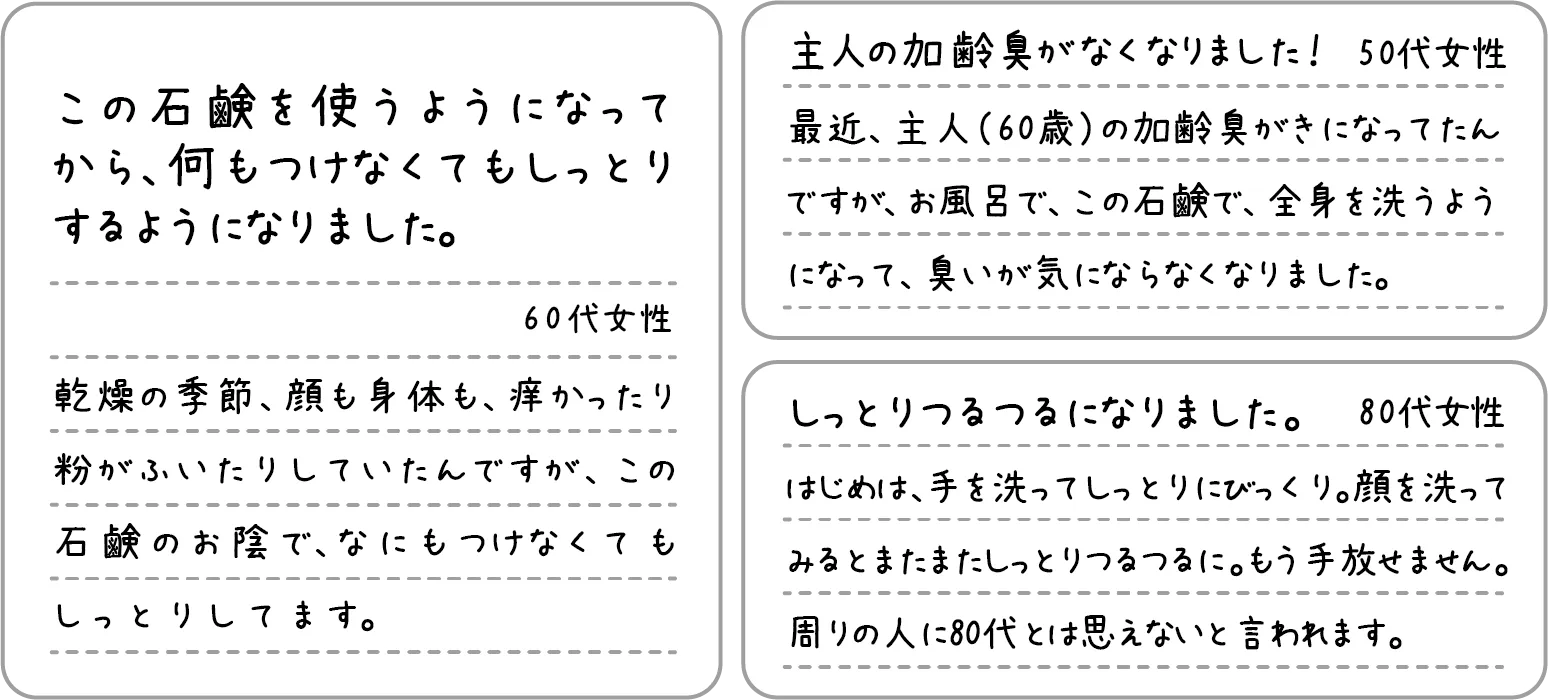 この石鹸を使うようになって
から、何もつけなくてもしっとり
するようになりました。
60代女性
乾燥の季節、顔も身体も、痒かったり
粉がふいたりしていたんですが、この
石鹸のお陰で、なにもつけなくても
しっとりしてます。
主人の加齢臭がなくなりました！ 50代女性
最近、主人(60歳)の加齢臭がきになってたん
ですが、お風呂で、この石鹸で、全身を洗うよう
になって、臭いが気にならなくなりました。
しっとりつるつるになりました。 80代女性
はじめは、手を洗ってしっとりにびっくり。顔を洗って
みるとまたまたしっとりつるつるに。もう手放せません。
周りの人に80代とは思えないと言われます。